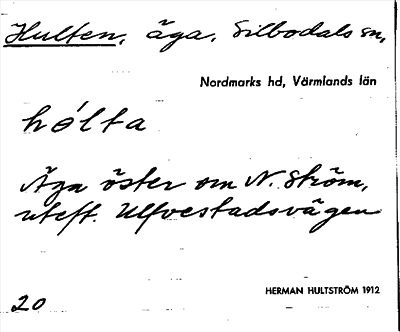 Hulten, äga, Silbodals sn,
Nordmarks hd, Värmlands län
hólta
Äga öster om N. Ström,
uteft. Ulfvestadsvägen
HERMAN HULTSTRÖM 1912
20